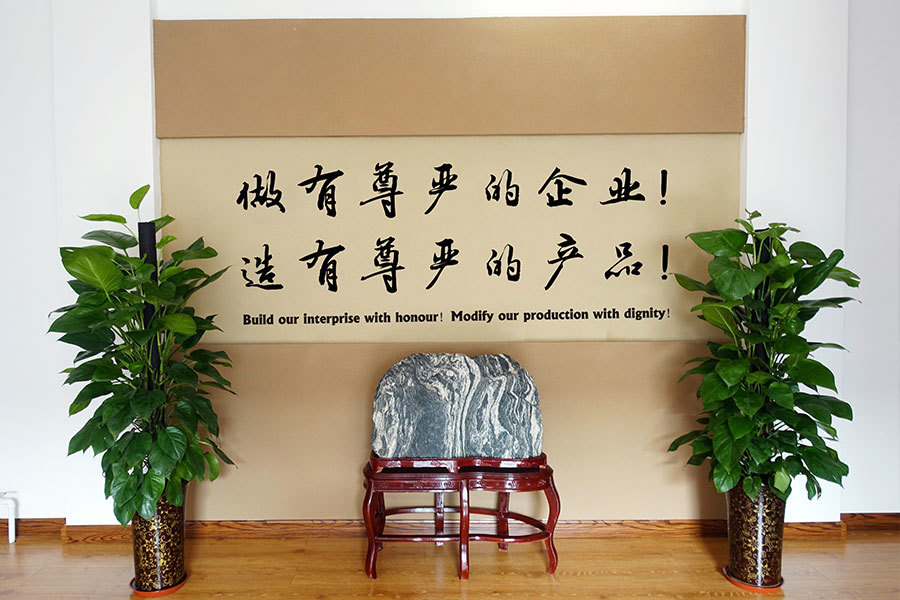 做有尊严的企业！
造有尊严的产品！
Build our interprise with honour! Modify our production with dignity!